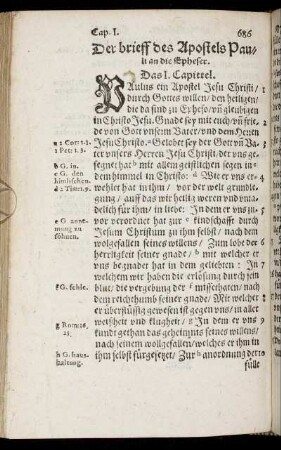 Cap. I. 686
Der brieff des Apostels Pau-
li an die Epheser.
Das I. Capittel.
PAulus ein Apostel Jesu Christi/
durch Gottes willen/ den heiligen/
die da sind zu Epheso/ vñ gläubigen
in Christo Jesu. Gnade sey mit euch/ vñ frie-
de von Gott vnserm Vater/ vnd dem Herren
Jesu Christo. Gelobet sey der Gott vñ Va-
ter vnsers Herren Jesu Christi/ der vns ge-
segnet hat mit allem geistlichen segen in dem
himmel in Christo: Wie er vns er-
wehlet hat in ihm/ vor der welt grundle-
gung/ auff das wir weren heilig vnd vnta-
delich für ihm/ in liebe: In dem er vns zu-
vor verordnet hat zur kindschafft durch
Jesum Christum zu ihm selbst/ nach dem
wolgefallen seines willens/ Zum lobe der
herrligkeit seiner gnade/ mit welcher er
vns begnadet hat in dem geliebten: In
welchem wir haben die erlösung durch sein
blut/ die vergebung der missethaten/ nach
dem reichthumb seiner gnade/ Mit welcher
er überflüssig gewesen ist gegen vns/ in aller
weißheit vnd klugheit/ In dem er vns
kundt gethan das geheimnis seines willens/
nach seinem wolgefallen/ welches er ihm in
ihm selbst fürgesetzet/ Zur anordnung der
fülle
1 Petr 1.3.
b G. in.
c G. den
d 2 Tim 1.9.
f G. fehle.
g Rom 16.
25.
h G. haus-
haltung.